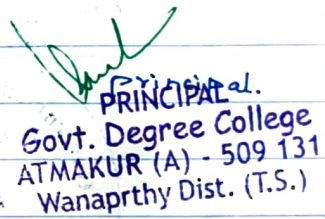 Principal.
PRINCIPAL
Govt. Degree College
ATMAKUR (A) - 509 131
Wanaprthy Dist. (T.S.)